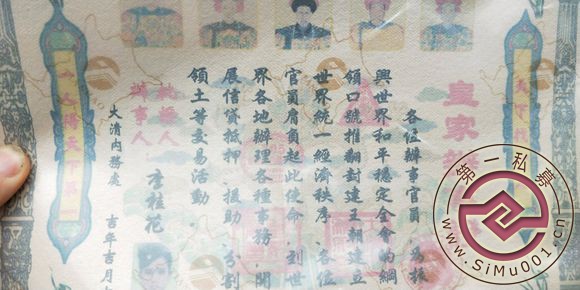 皇家
各位辦事官員．為振
興世界和平穩定全會的綱
領口號推翻封建王朝建立
世界統一經濟秩序．各位
官員肩負起此使命．到世
界各地辦理各種事務．開
展信貸抵押．援助．分割
領土等交易活動．
辦事人
李桂花
大清内務處
吉年吉月
第一私募
www.SiMu001.cn